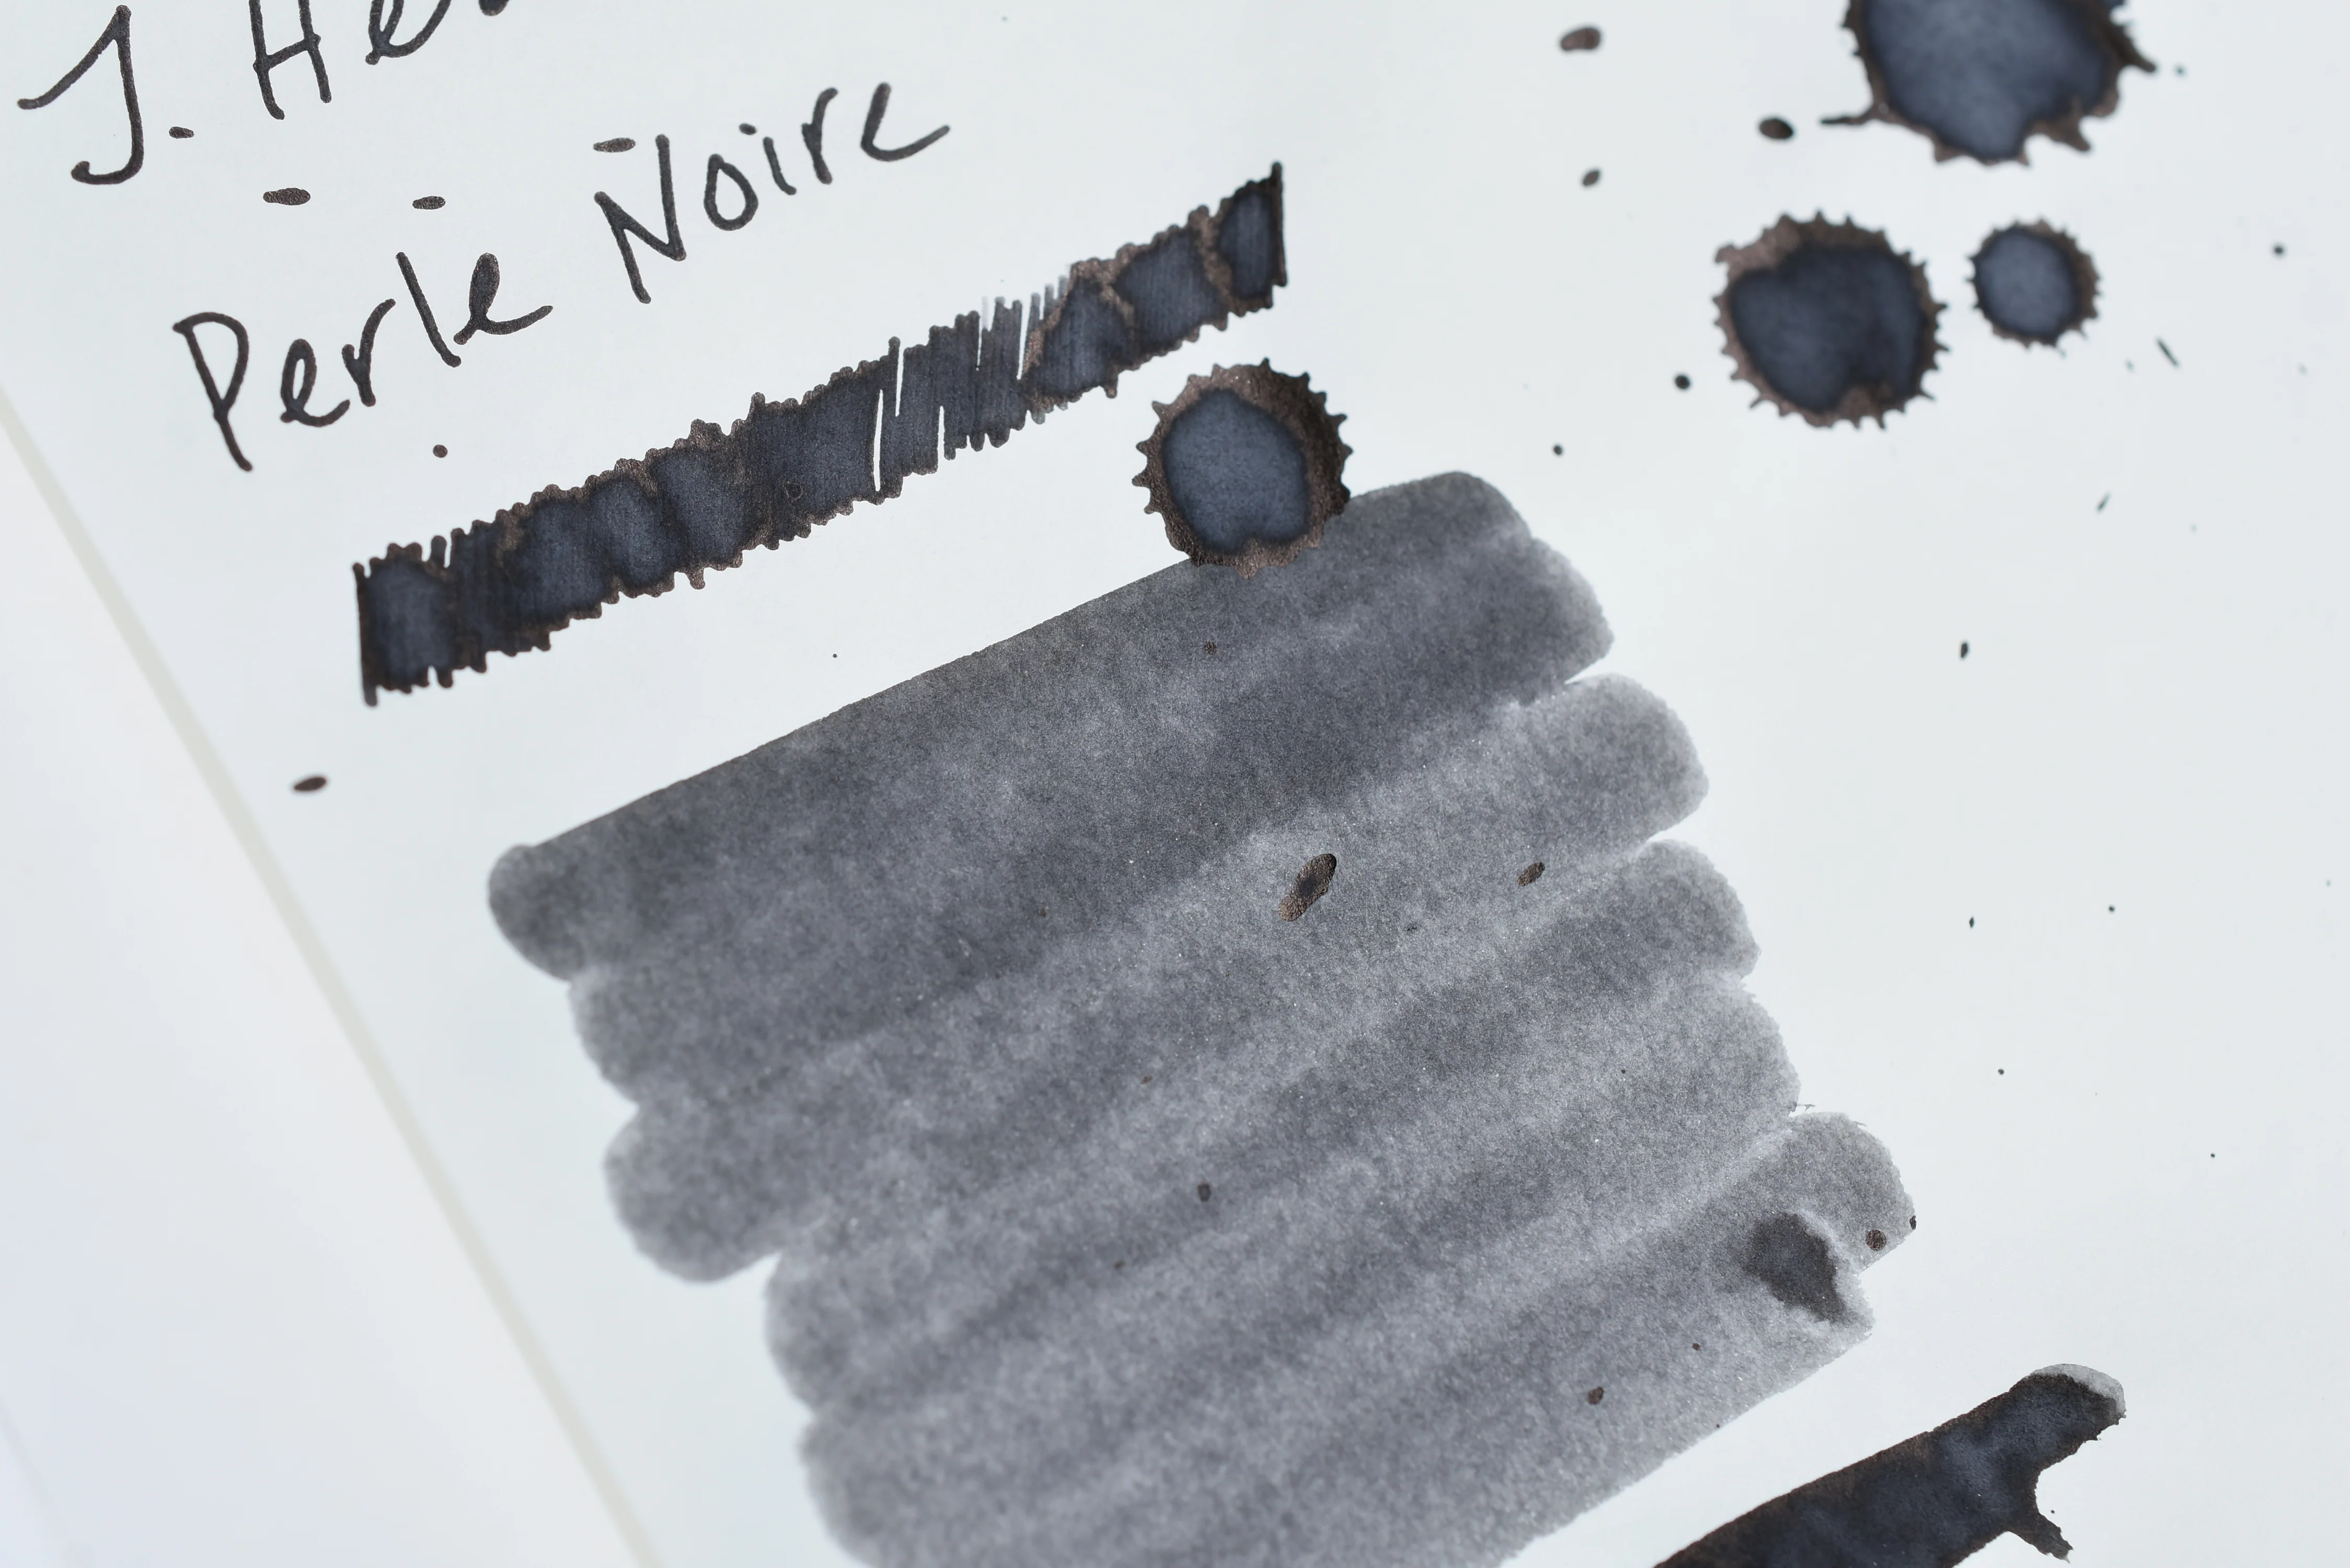 J. He
Perle Noire